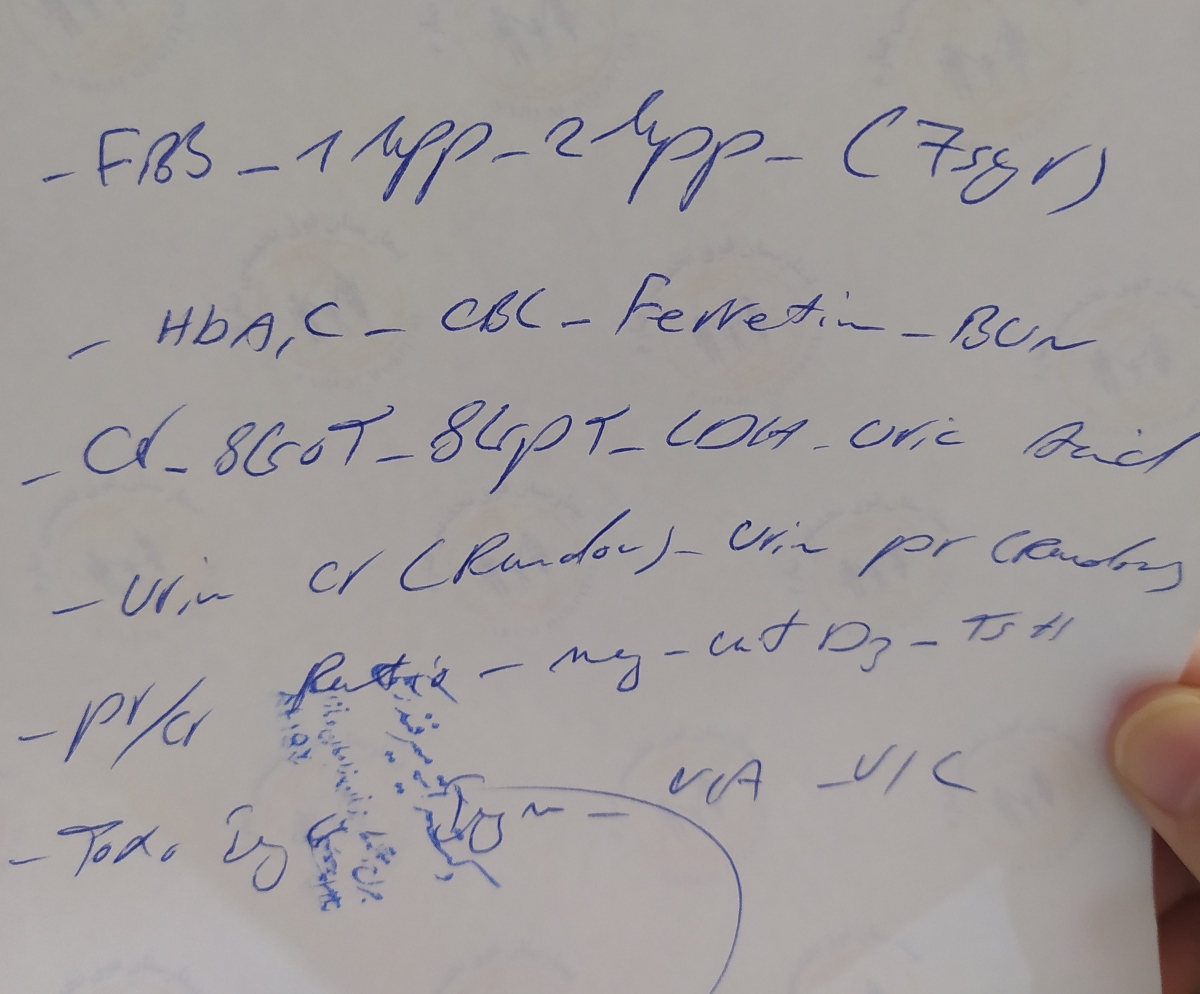 - FBS - 1 hpp - 2 hpp - (75gr)
- HbA1C - CBC - Ferretin - BUN
- Cr - SGOT - SGPT - LDH - Uric Acid
- Urin Cr (Random) - Urin pr (Random)
- pr/cr Ratio - mg - vit D3 - TSH
- Toxo Ig - U/A - U/C